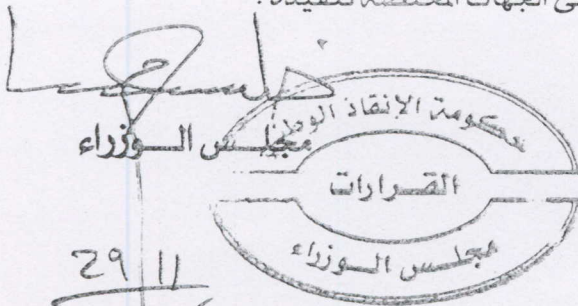 الجهات المختصة تنفيذه .
مجلس الوزراء
حكومة الإنقاذ الوطني
القرارات
مجلس الوزراء
29 11